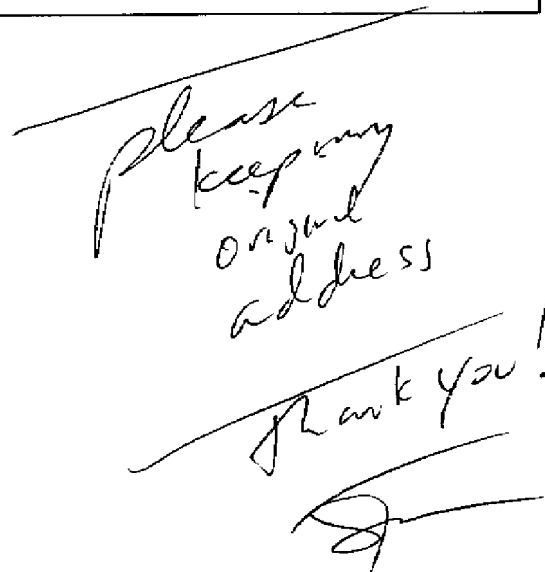 please
keep my
original
address
Thank you!